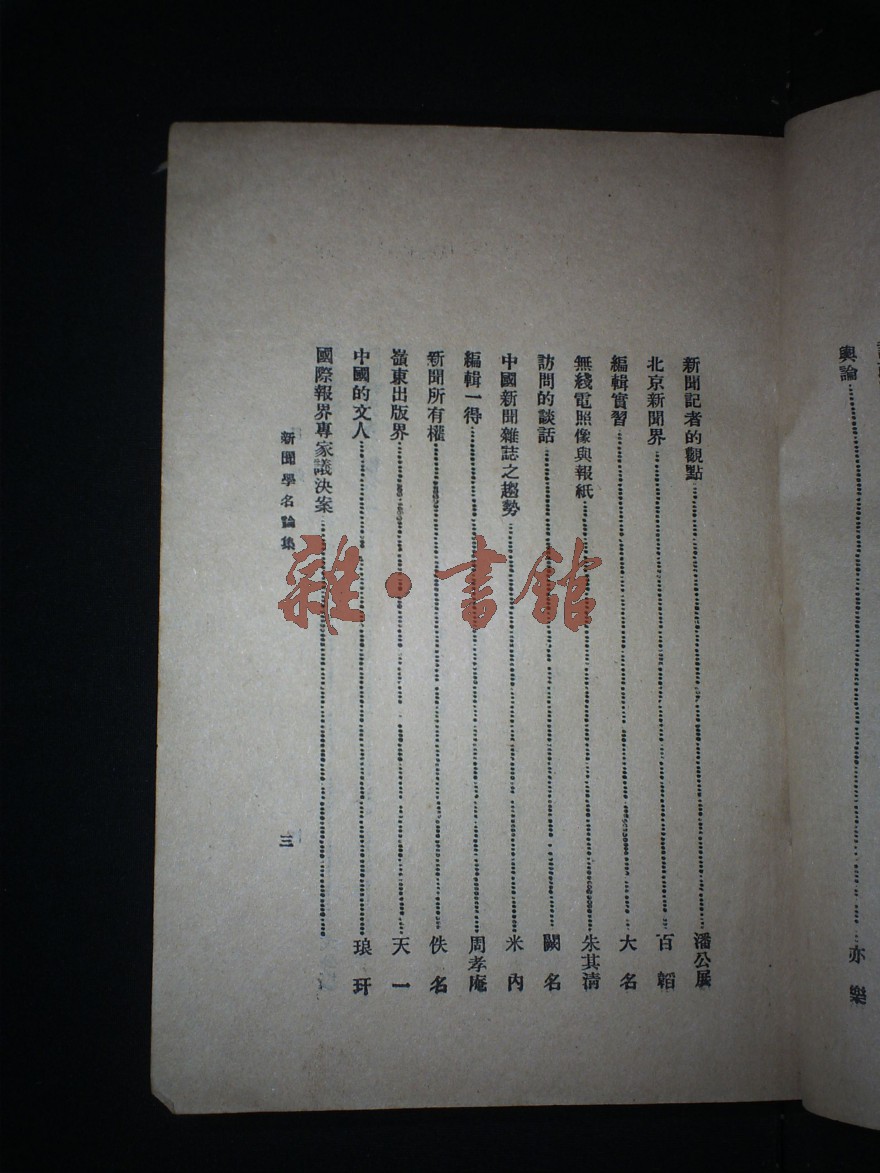 輿論 亦樂
新聞記者的觀點 潘公展
北京新聞界 百韜
編輯實習 大名
無綫電照像與報紙 朱其清
訪問的談話 闕名
中國新聞雜誌之趨勢 米內
編輯一得 周孝庵
新聞所有權 佚名
嶺東出版界 天一
中國的文人 琅玕
國際報界專家議決案
新聞學名論集 三
雜·書館